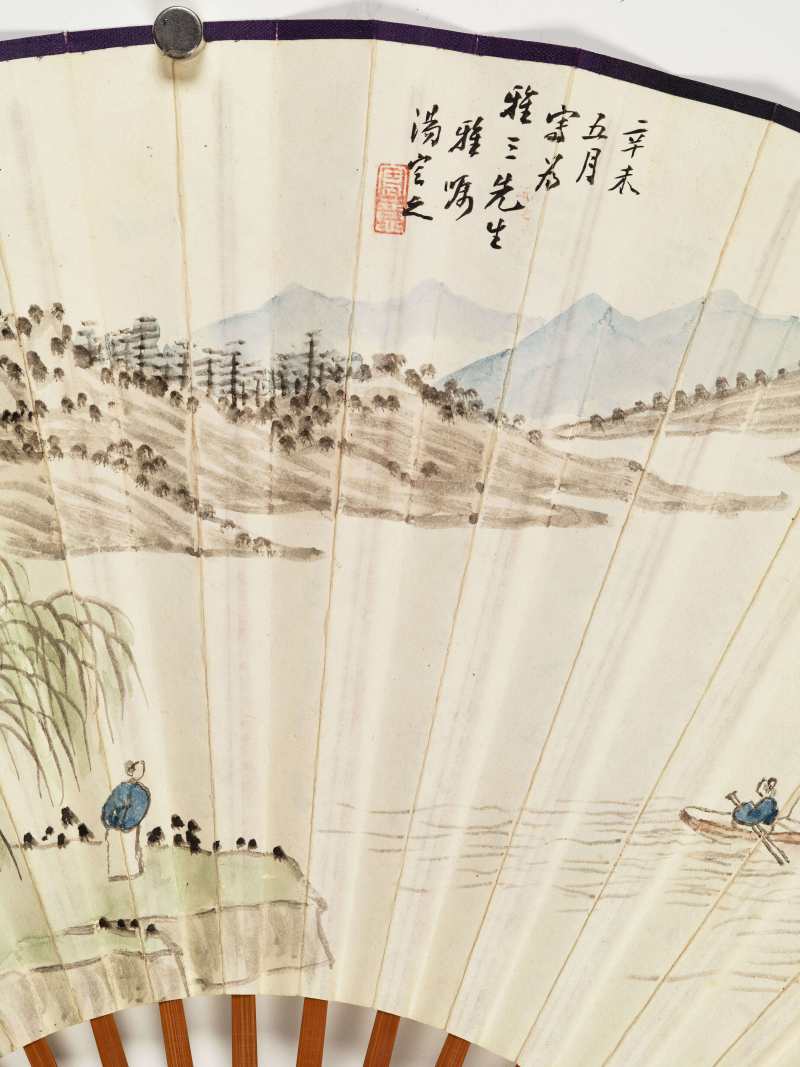 辛未
五月
寫為
雅三先生
雅嘱
湯定之